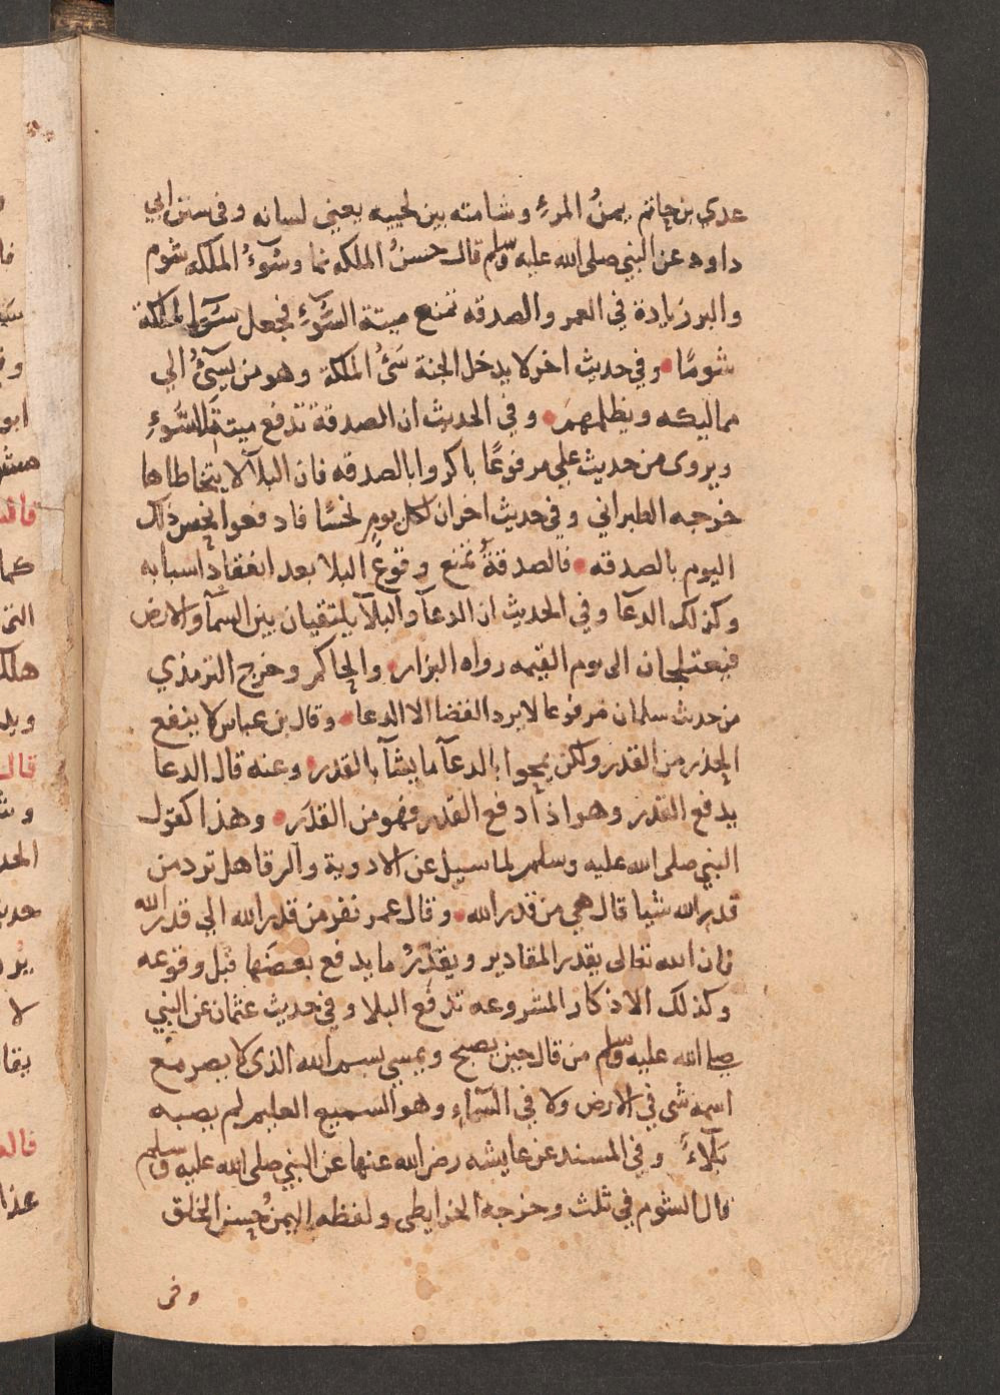 عدي بن حاتم يمنُ المرءِ وشامته بين لحييه يعني لسانه وفي سنن ابي
داود عن النبي صلى الله عليه وسلم قال حسنُ الملكه نما وسَوءُ الملكه شوم
والبر زيادة في العمر والصدقه تمنع ميتة السُّوءِ فجعل سُوءَ الملكة
شومًا وفي حديث اخر لا يدخل الجنة سَئُ الملكة وهو من يسئُ الي
مماليكه ويظلمهم وفي الحديث ان الصدقة تدفع ميتة السُّوءِ
ويروى من حديث علي مرفوعًا باكروا بالصدقه فان البلآ لا يتخاطاها
خرجه الطبراني وفي حديث اخر ان لكل يومٍ نحسًا فادفعوا نحس ذلك
اليوم بالصدقه فالصدقةُ تمنع وقوع البلا بعد انعقاد اسبابه
وكذلك الدعآ وفي الحديث ان الدعآ والبلآ يلتقيان بين السمآ والارض
فيعتلجان الى يوم القيمه رواه البزار والحاكم وخرج الترمذي
من حديث سلمان مرفوعا لا يرد القضا الا الدعا وقال بن عباس لا ينفع
الحذر من القدر ولكن يمحوا بالدعآ ما يشآ بالقدر وعنه قال الدعا
يدفع القدر وهو اذا دفع القدر فهو من القدَر وهذا كقول
النبي صلى الله عليه وسلم لما سيل عن الادوية والرقا هل ترد من
قدر الله شيا قال هي من قدر الله وقال عمر نفر من قدر الله الي قدر الله
فان الله تعالى يقدر المقادير ويقدّرُ ما يدفع بعضَها قبل وقوعه
وكذلك الاذكار المشروعه تدفع البلا وفي حديث عثمان عن النبي
صلى الله عليه وسلم من قال حين يصبح ويمسي بسم الله الذى لا يضر مع
اسمه شى في الارض ولا في السَّماءِ وهو السميع العليم لم يصبه
بَلآءٌ وفي المسند عن عايشه رضي الله عنها عن النبي صلى الله عليه وسلم
قال الشوم في ثلث وخرجه الخرايطى ولفظه اليمنُ حسن الخلق
وفى